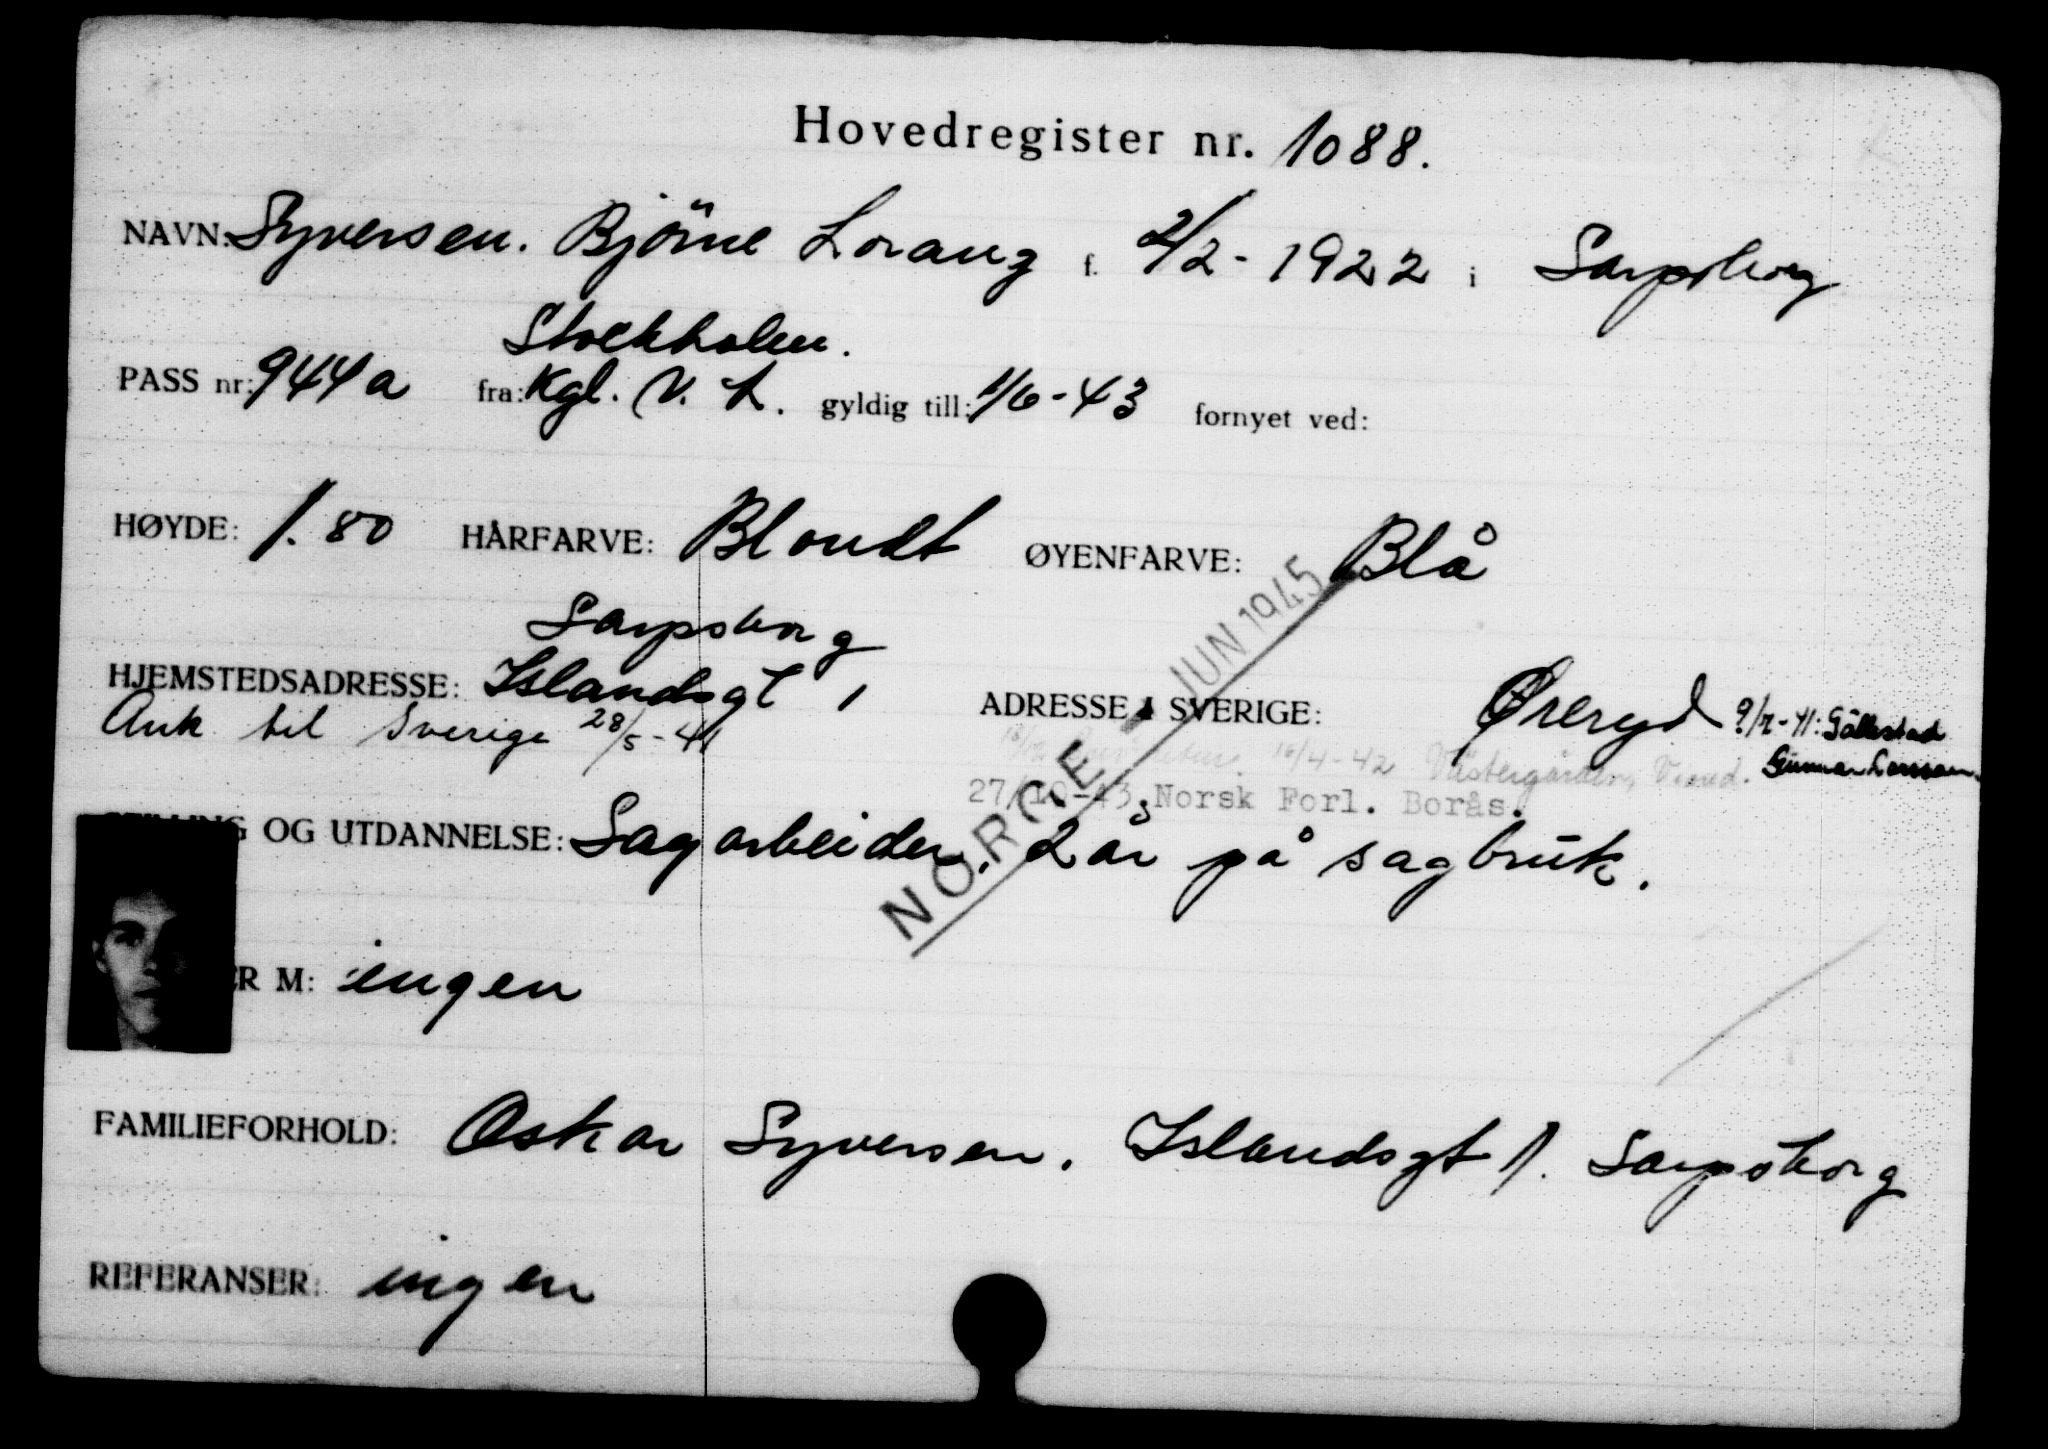 Hovedregister nr. 1088.
NAVN: Syversen. Björne Lorang f. 2/2-1922 i Sarpsborg
Stockholm.
PASS nr: 944a fra: Kgl. N. L. gyldig till: 1/6-43 fornyet ved:
HØYDE: 1.80 HÅRFARVE: Blondt ØYENFARVE: Blå
Sarpsborg
HJEMSTEDSADRESSE: Islandsgt 1 ADRESSE I SVERIGE: Øreryd 9/7-41: Gällestad
Ank til Sverige 28/5-41 16/4-42 Västergården, Gunnar Larsson
27/10-43. Norsk Forl. Borås.
OG UTDANNELSE: Sagarbeider. 2 år på sagbruk.
NORGE JUN 1945
ER M: ingen
FAMILIEFORHOLD: Oskar Syversen. Islandsgt 1. Sarpsborg
REFERANSER: ingen